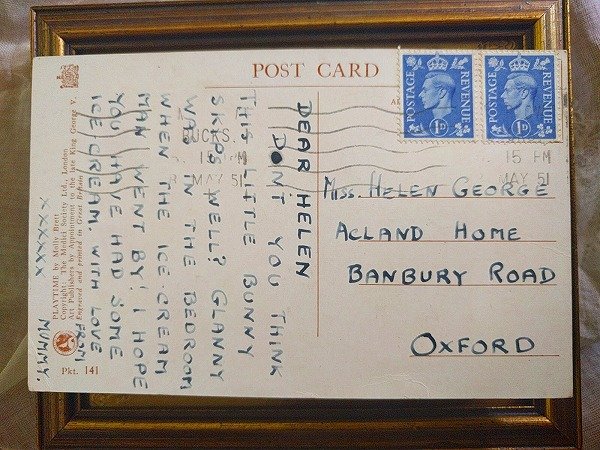 POST CARD
POSTAGE REVENUE
1D
POSTAGE REVENUE
1D
UCKS.
15 PM
MAY 51
15 PM
MAY 51
DEAR HELEN
DON'T YOU THINK
THIS LITTLE BUNNY
SKIPS WELL? GLANNY
WAS IN THE BEDROOM
WHEN THE ICE-CREAM
MAN WENT BY! I HOPE
YOU HAVE HAD SOME
ICE CREAM. WITH LOVE
FROM
MUMMY.
XXXXXX
MISS. HELEN GEORGE
ACLAND HOME
BANBURY ROAD
OXFORD
PLAYTIME by Molly Brett
Copyright: The Medici Society Ltd., London
Art Publishers by Appointment to the late King George V.
Engraved and printed in Great Britain
Pkt. 141